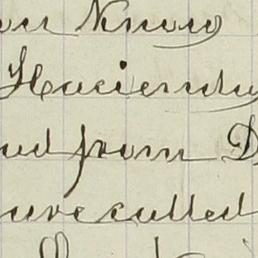 ou Know
Hacienda
ud from D
ure called